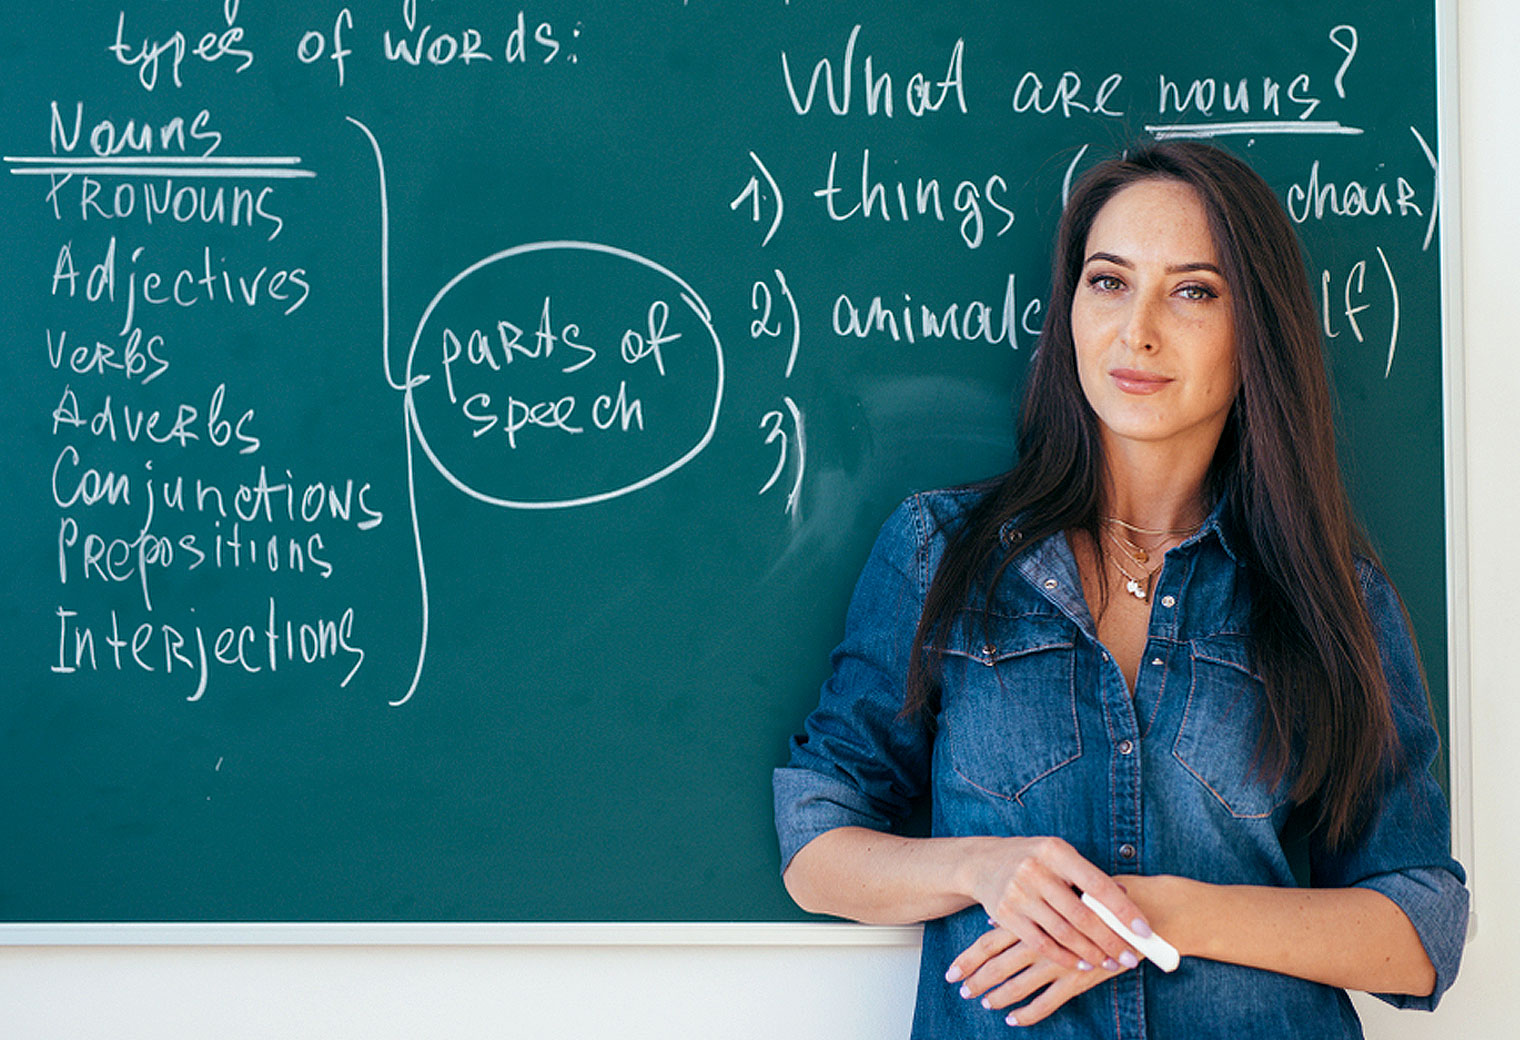 types of words:
Nouns
Pronouns
Adjectives
Verbs
Adverbs
Conjunctions
Prepositions
Interjections
parts of
speech
What are nouns?
1) things ( chair)
2) animals
3)